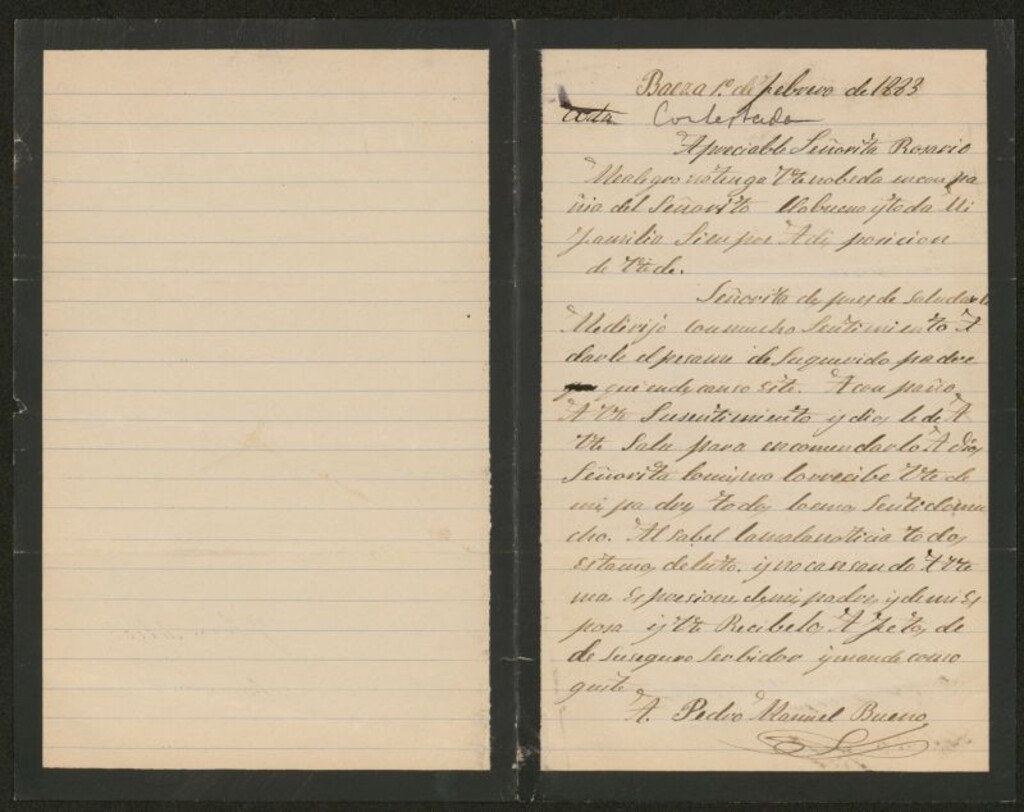 Baeza 1º de febrero de 1883
Contestada
Apreciable Señorita Rosario
Mealegro notenga Vte nobeda encompa
ñia del Señorito llobueno ytoda Mi
familia Sienpre Adis posicion
de Vtede.
Señorita des pues de saludarle
Medirijo conmucho Sentimiento A
darle el pesame de Suquerido padre
que endescanso esté. Acompaño
A Vte Susentimiento y dios le de A
Vte Salu para encomendarlo A dios
Señorita lomismo lorrecibe Vte de
mis padres todos lemos Sentidomu
cho. Al sabel lamalanoticia todos
estamos deluto. y nocansando A Vte
mas Espresiones demis padres y demi Es
posa y Vte Recibelos A fetos de
de Suseguro Serbidor ymande como
guste
A. Pedro Manuel Bueno